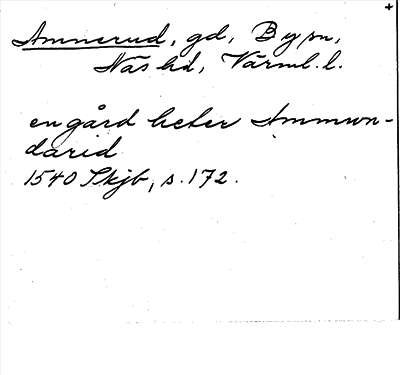 Amnerud, gd, By sn,
Näs hd, Värml. l.
en gård heter Ammun-
darid
1540 Skjb, s. 172.